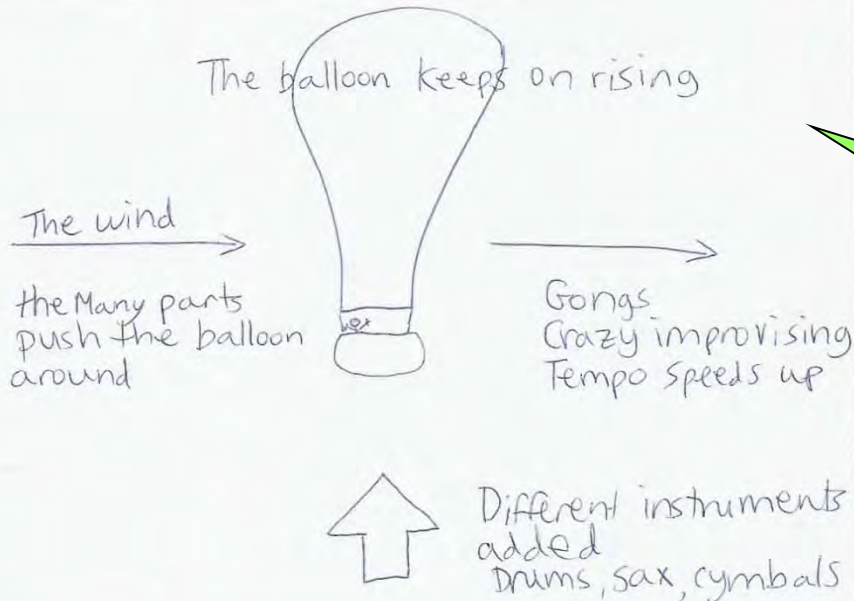 The balloon keeps on rising
The wind
the Many parts
push the balloon
around
vox
Gongs
Crazy improvising
Tempo speeds up
Different instruments
added
Drums, sax, cymbals